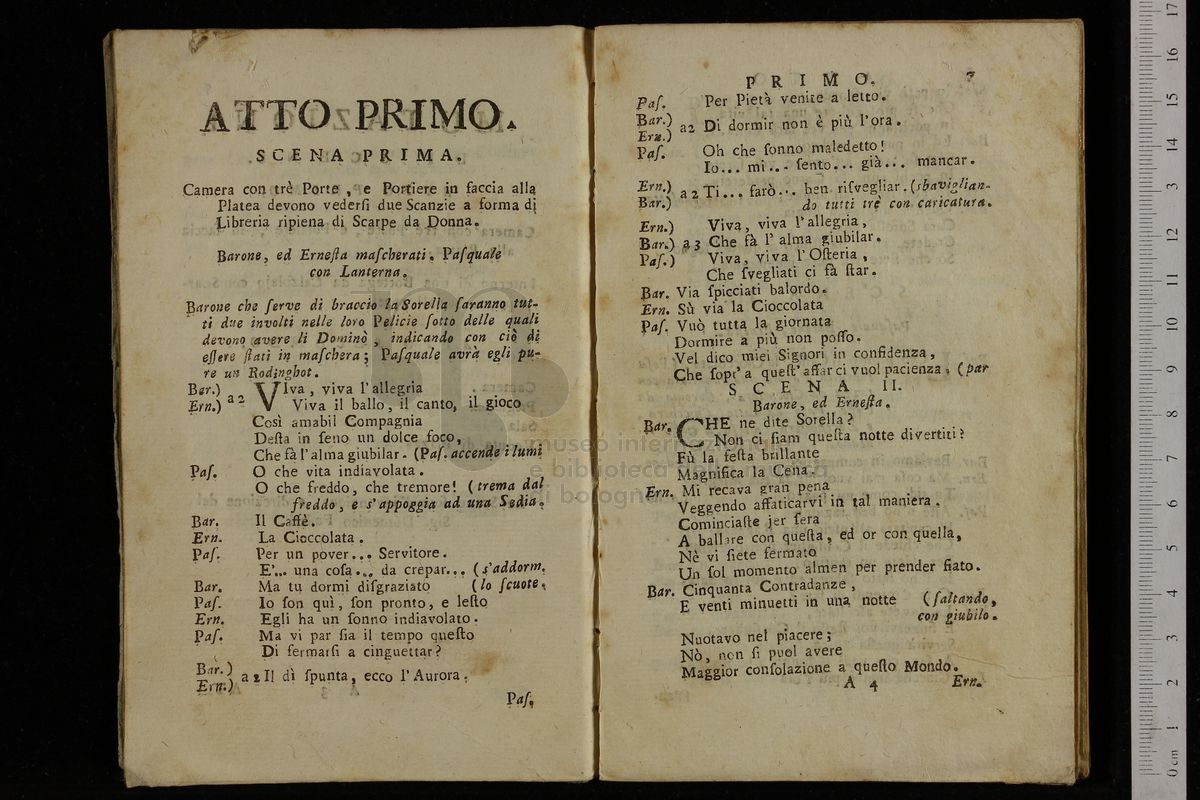 ATTO PRIMO.
SCENA PRIMA.
Camera con trè Porte, e Portiere in faccia alla
Platea devono vederſi due Scanzie a forma di
Libreria ripiena di Scarpe da Donna.
Barone, ed Erneſta maſcherati. Paſquale
con Lanterna.
Barone che ſerve di braccio la Sorella ſaranno tut-
ti due involti nelle loro Pelicie ſotto delle quali
devono avere li Dominò, indicando con ciò di
eſſere ſtati in maſchera; Paſquale avrà egli pu-
re un Rodinghot.
Bar.) a2 VIva, viva l'allegria
Ern.) Viva il ballo, il canto, il gioco
Così amabil Compagnia
Deſta in ſeno un dolce foco,
Che fà l'alma giubilar. (Paſ. accende i lumi
Paſ. O che vita indiavolata.
O che freddo, che tremore! (trema dal
freddo, e s'appoggia ad una Sedia.
Bar. Il Caffè.
Ern. La Cioccolata.
Paſ. Per un pover... Servitore.
E'... una coſa... da crepar... (s'addorm.
Bar. Ma tu dormi diſgraziato (lo ſcuote.
Paſ. Io ſon quì, ſon pronto, e leſto
Ern. Egli ha un ſonno indiavolato.
Paſ. Ma vi par ſia il tempo queſto
Di fermarſi a cinguettar?
Bar.) a2 Il dì ſpunta, ecco l'Aurora.
Ern.)
Paſ.
PRIMO. 7
Paſ. Per Pietà venite a letto.
Bar.) a2 Di dormir non è più l'ora.
Ern.)
Paſ. Oh che ſonno maledetto!
Io... mi... ſento... già... mancar.
Ern.) a2 Ti... farò... ben riſvegliar. (sbaviglian-
Bar.) do tutti trè con caricatura.
Ern.) Viva, viva l'allegria,
Bar.) a3 Che fà l'alma giubilar.
Paſ.) Viva, viva l'Oſteria,
Che ſvegliati ci fà ſtar.
Bar. Via ſpicciati balordo.
Ern. Sù via la Cioccolata
Paſ. Vuò tutta la giornata
Dormire a più non poſſo.
Vel dico miei Signori in confidenza,
Che ſopr'a queſt'affar ci vuol pacienza. (par
SCENA II.
Barone, ed Erneſta.
Bar. CHE ne dite Sorella?
Non ci ſiam queſta notte divertiti?
Fù la feſta brillante
Magnifica la Cena.
Ern. Mi recava gran pena
Veggendo affaticarvi in tal maniera.
Cominciaſte jer ſera
A ballare con queſta, ed or con quella,
Nè vi ſiete fermato
Un ſol momento almen per prender fiato.
Bar. Cinquanta Contradanze,
E venti minuetti in una notte (ſaltando,
con giubilo.
Nuotavo nel piacere;
Nò, non ſi puol avere
Maggior conſolazione a queſto Mondo.
A 4 Ern.
museo internazionale
e biblioteca della musica
di bologna
0 cm 1 2 3 4 5 6 7 8 9 10 11 12 13 14 15 16 17